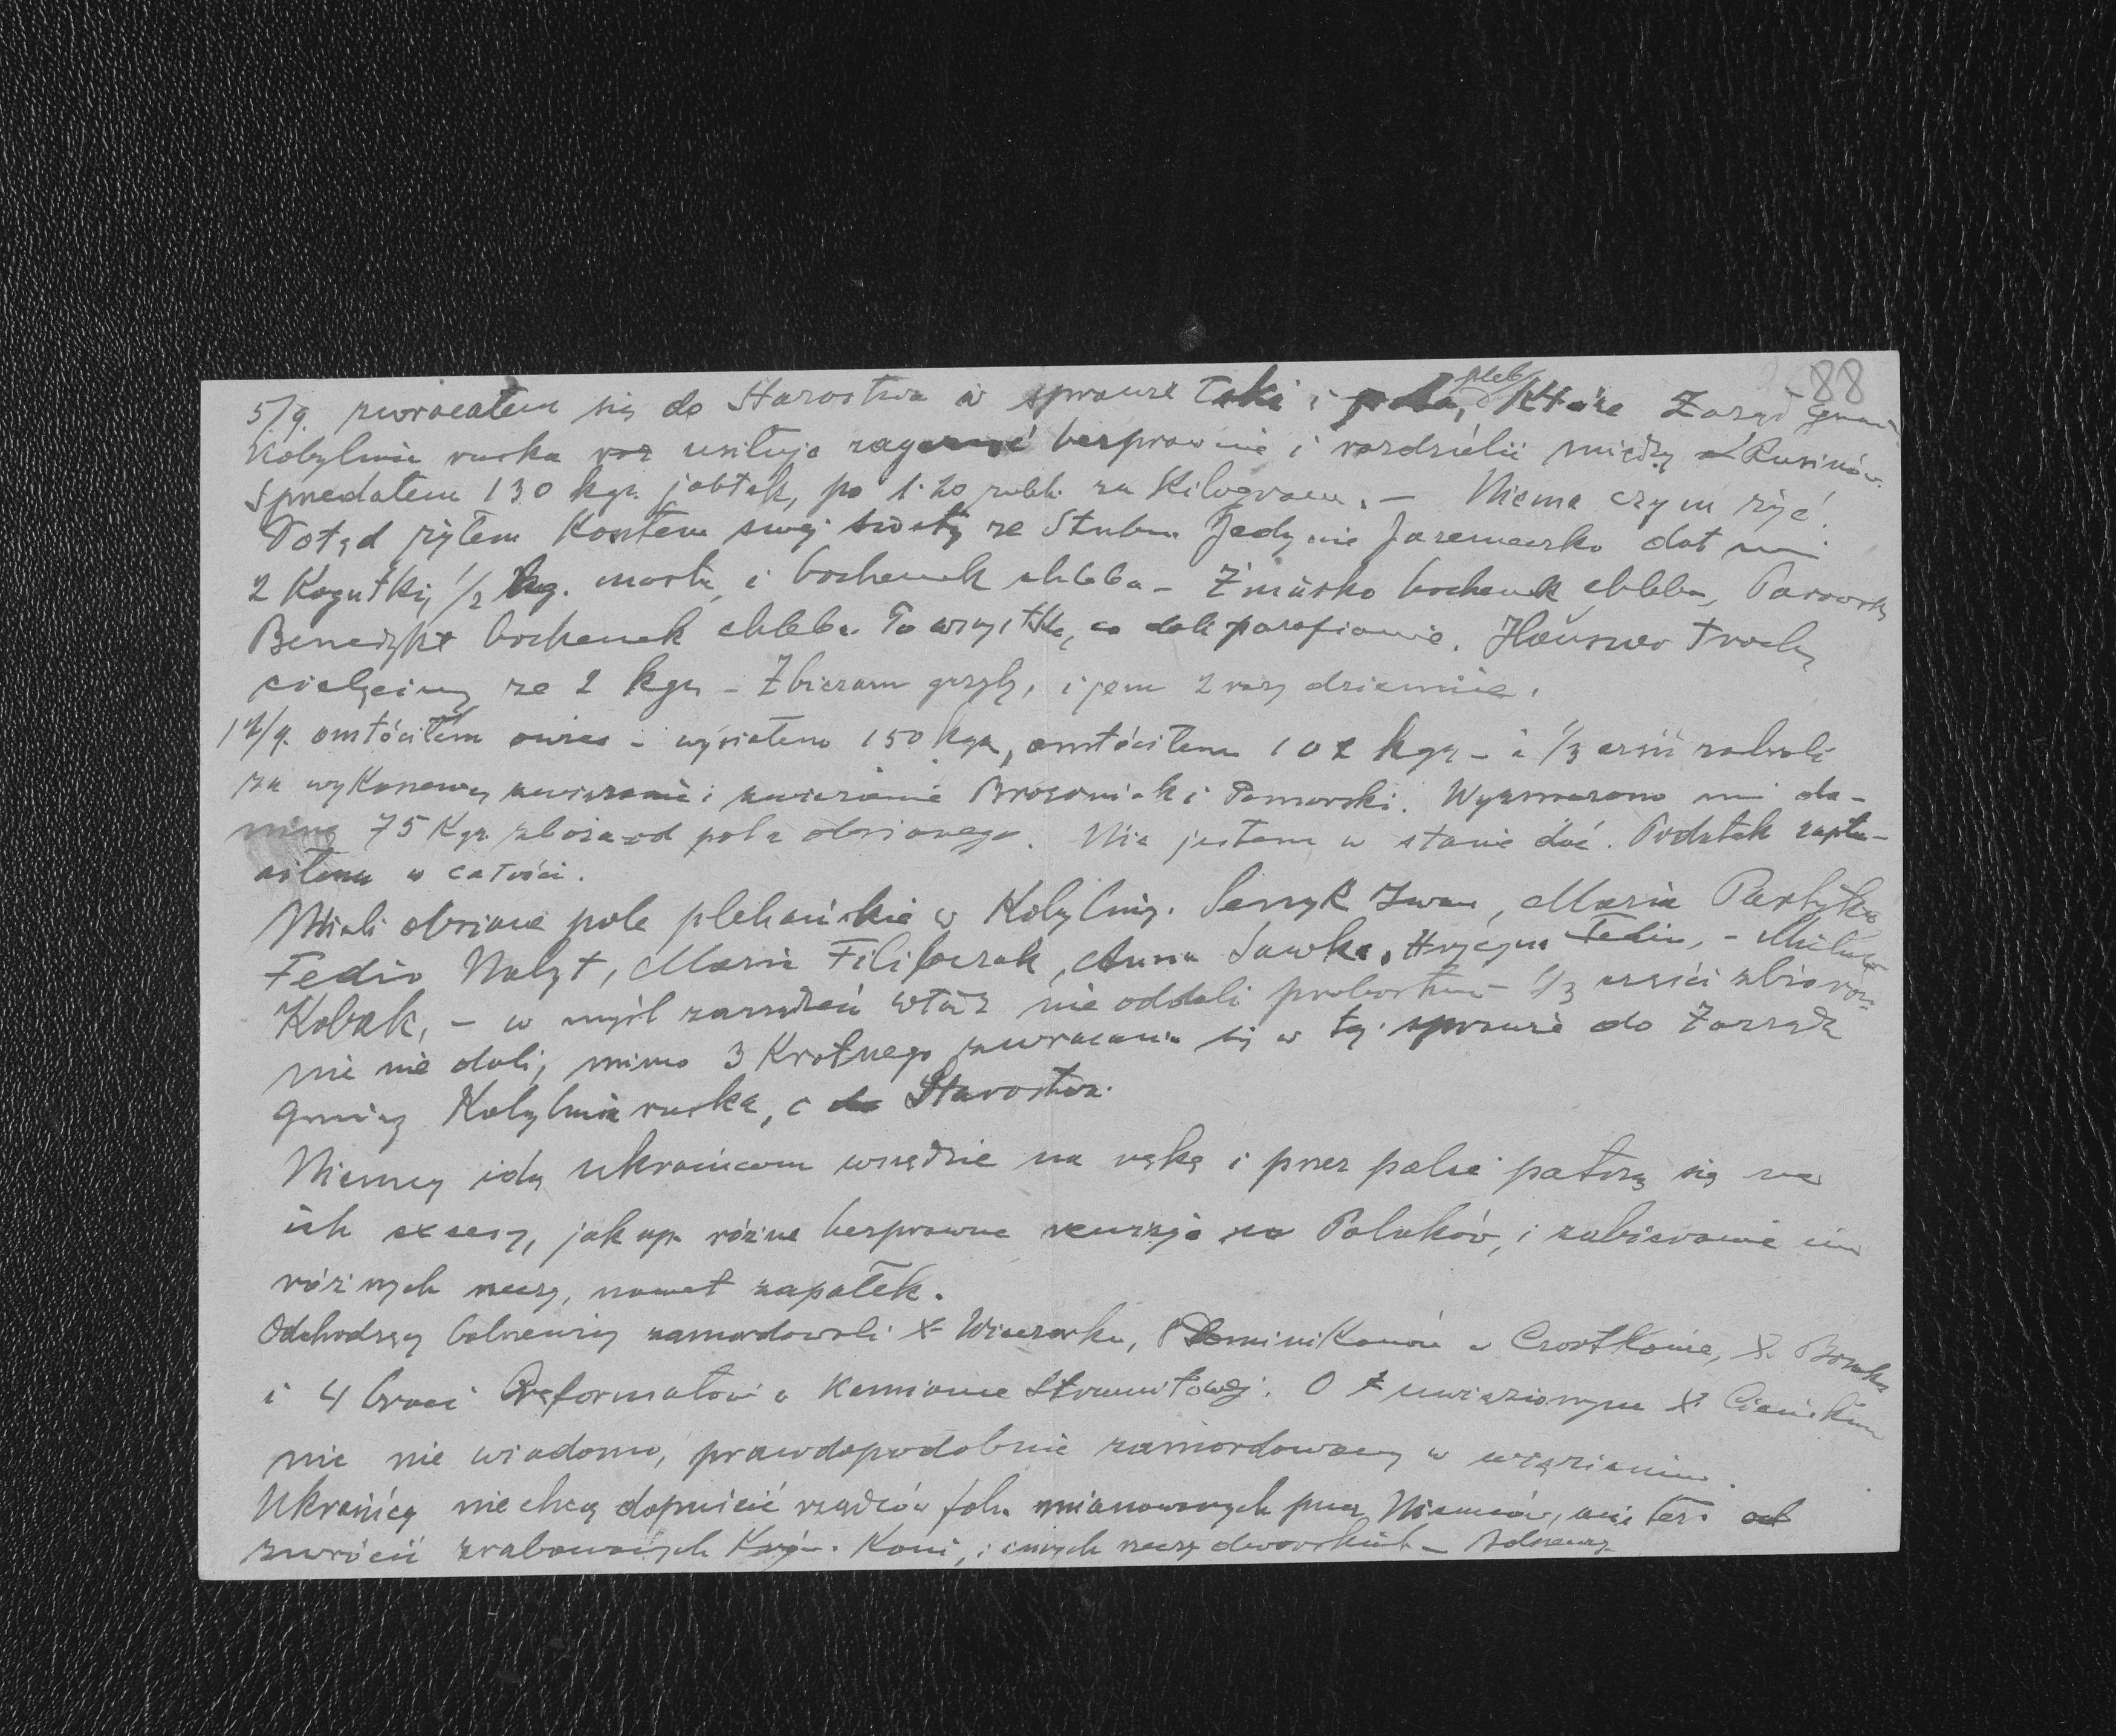 88
5/9. zwracałem się do Starostwa w sprawie łąki i pola, pleb. które Zarząd Gminy
Kobylnica ruska usiłuje zagarnąć bezprawnie i rozdzielić między Rusinów.
Sprzedałem 130 kgr. jabłek, po 1·20 rubli za Kilogram. – Niema czym żyć.
Dotąd żyłem Kosztem swej siostry ze Jedynie dał mi
2 Kogutki, 1/2 kg. masła, i bochenek chleba – bochenek chleba,
Benedykt bochenek chleba. To wszystko, co dali parafianie. trochę
cielęciny ze 2 kgr – Zbieram grzyby, i jem 2 razy dziennie.
omłóciłem owies – wysiałem 150 kgr, omłóciłem 102 kgr – i 1/3 części zabrali
za wykonany zwiezienie i Pomorski. Wyznaczono mi da-
ninę 75 Kgr. zboża od pola obsianego. Nie jestem w stanie dać. Podatek zapła-
ciłem w całości.
Mieli obsiane pole plebańskie w Kobylnicy. Senyk Iwan, Maria
Fedio Nalyt, Maria Filipczak, Anna Sawka,
Kobak, – w myśl zarządzeń władz nie oddali probostwu 1/3 części zbiorów.
nic nie dali, mimo 3 Krotnego zwracania się w tej sprawie do Zarządu
gminy Kobylnica ruska, i do Starostwa.
Niemcy idą Ukraińcom wszędzie na rękę i przez palce patrzą się na
ich excesy, jak np. różne bezprawne rewizje u Polaków, i zabieranie im
różnych rzeczy, nawet zapałek.
Odchodzący bolszewicy zamordowali X. 8 Dominikanów w Czortkowie, X.
i 4 braci Reformatów w Kamionce Strumiłowej. O uwięzionym X.
nic nie wiadomo, prawdopodobnie zamordowany w więzieniu.
Ukraińcy nie chcą dopuścić rządców folw. mianowanych przez Niemców, ani też
zwrócić zrabowanych Krów. Koni, i innych rzeczy dworskich –